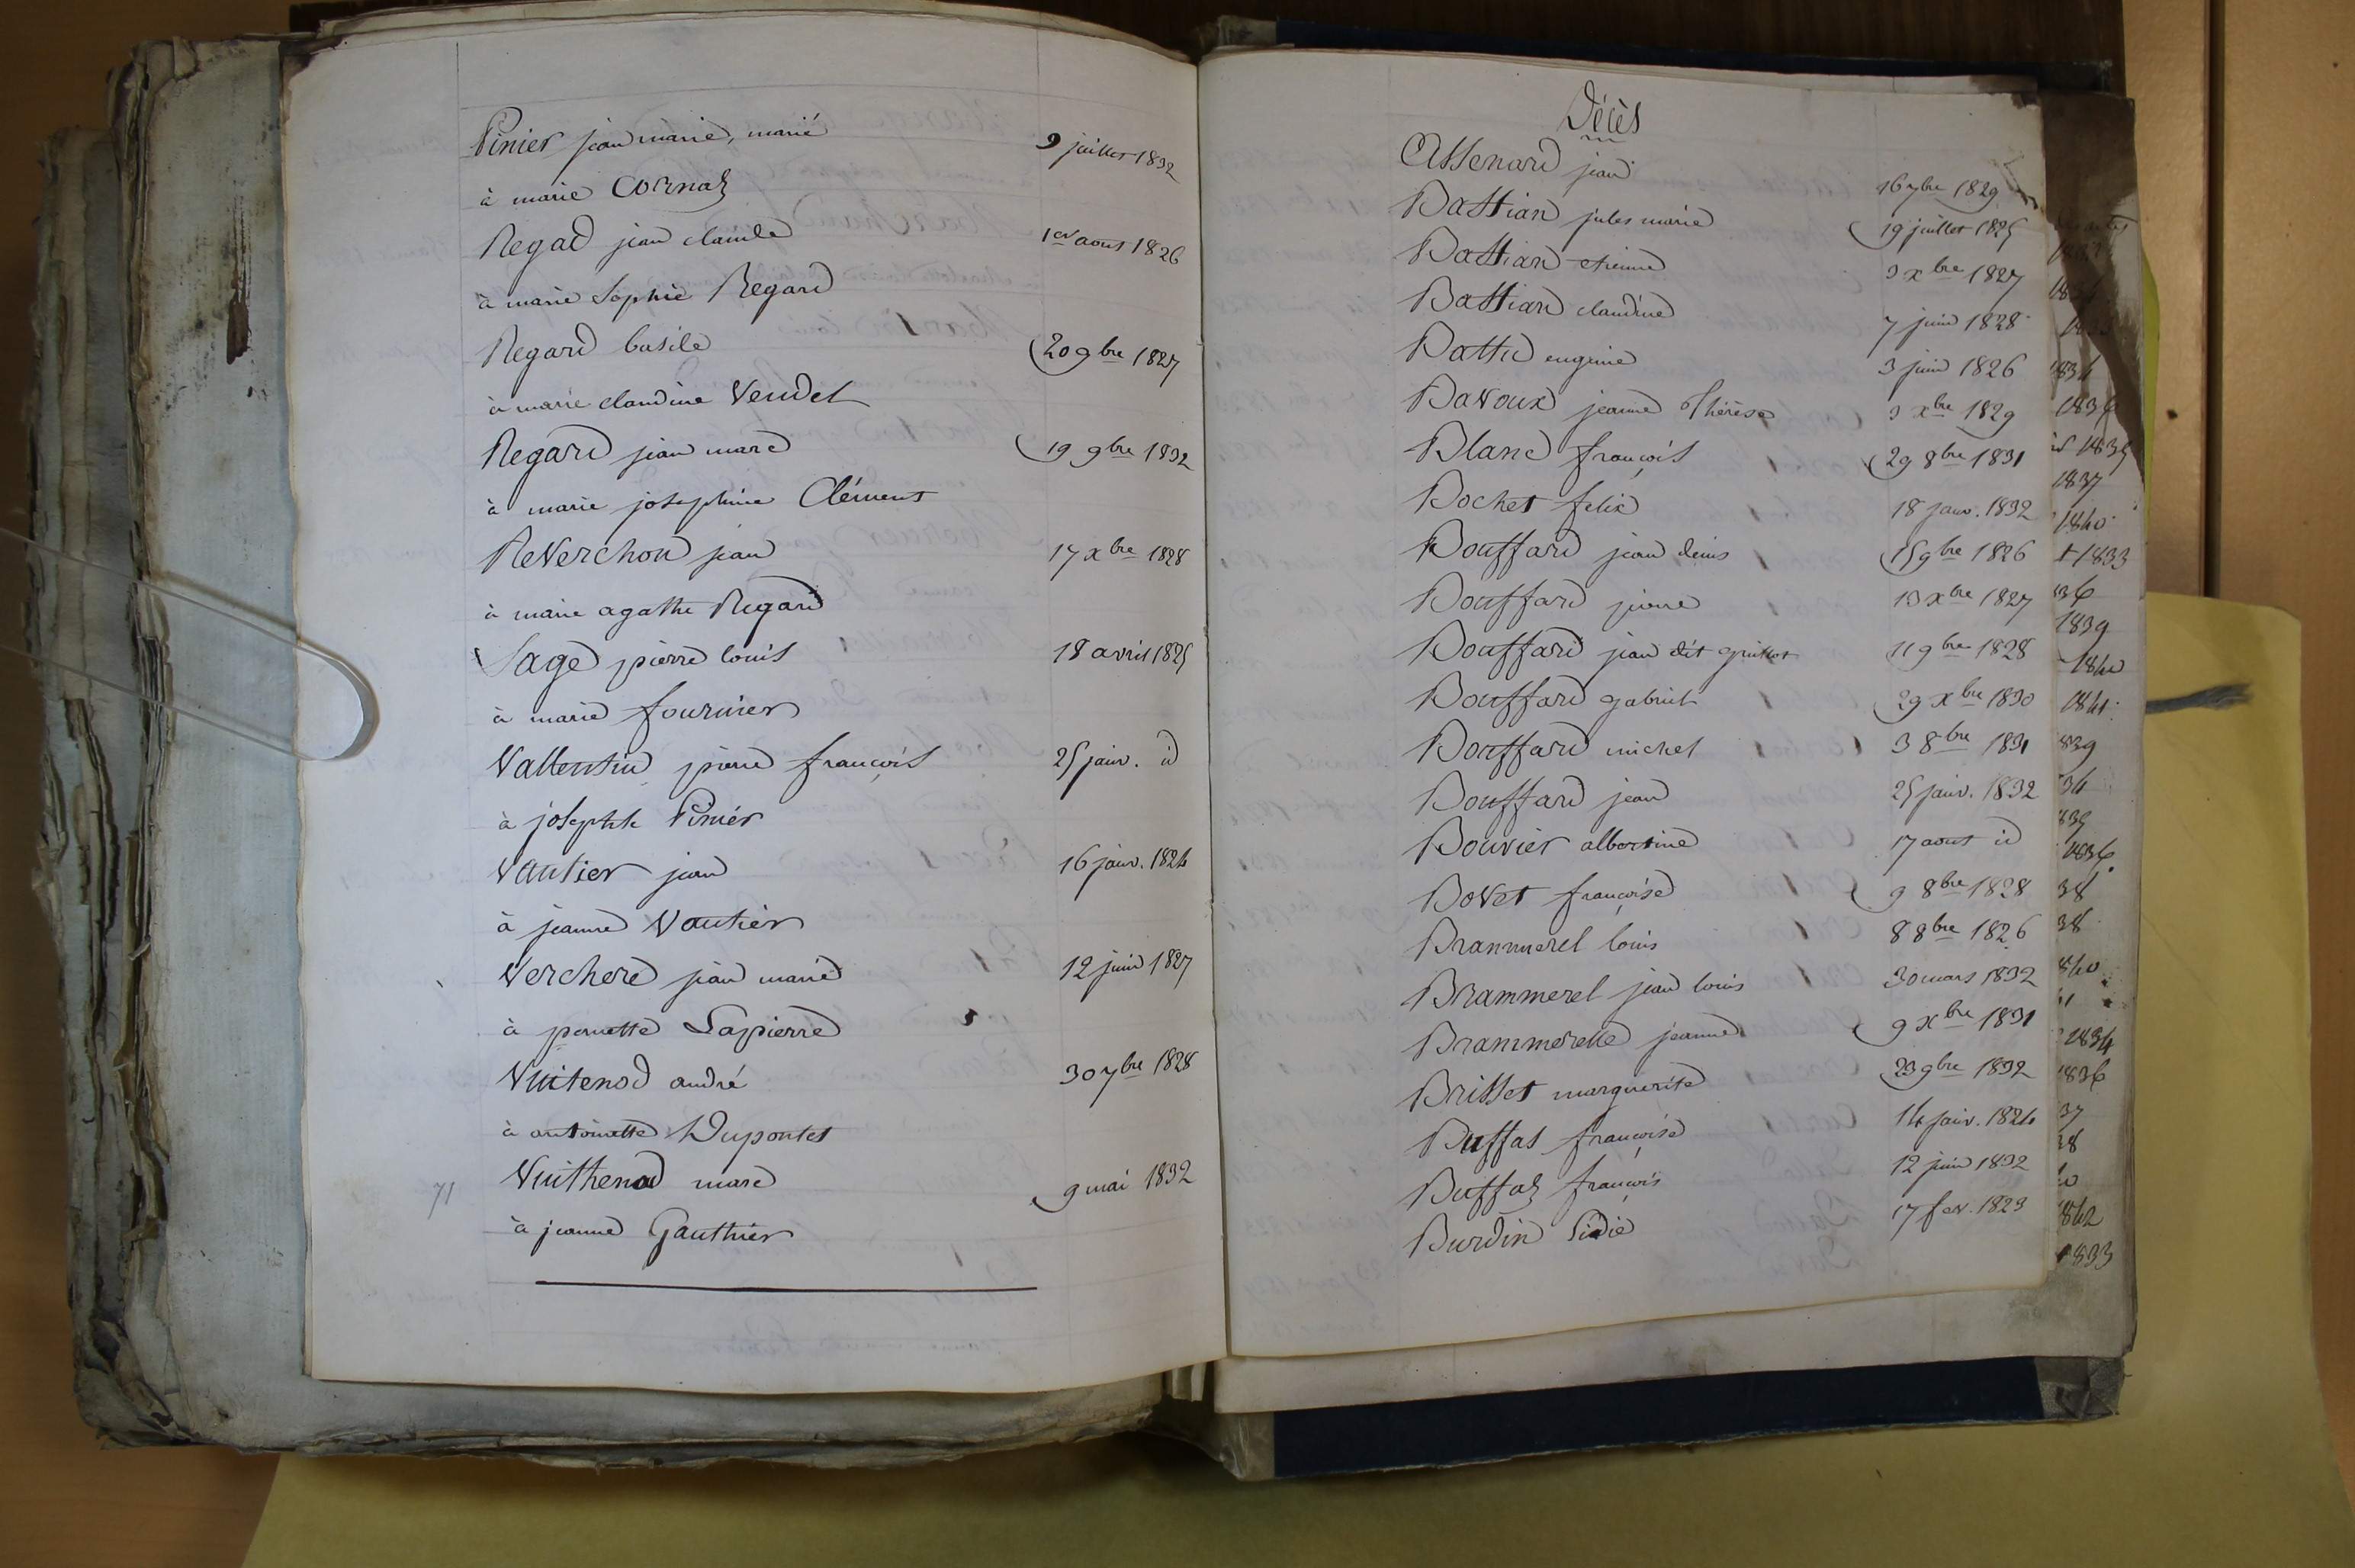 Pinier jean marie, marié 9 juillet 1832
à marie Cornaz
Regad jean claude 1er aout 1826
à marie Sophie Regard
Regard basile 20 9bre 1827
à marie claudine Vendel
Regard jean marc 19 9bre 1832
à marie josephine Clément
Reverchon jean 17 xbre 1828
à marie agathe Regard
Sage pierre louis 18 avril 1825
à marie fournier
Vallentin pierre françois 25 janv. id
à josephte Pinier
Vautier jean 16 janv. 1824
à jeanne Vautier
Verchere jean marie 12 juin 1827
à pernette Lapierre
Vuitenod andré 30 7bre 1828
à antoinette Dupontet
71 Vuithenod marc 9 mai 1832
à jeanne Gauthier
Décès
Assenard jean 16 7bre 1829
Bastian jules marie 19 juillet 1825
Bastian etienne 3 xbre 1827
Bastian claudine 7 juin 1828
Battu eugenie 3 juin 1826
Bavoux jeanne Thérèse 3 xbre 1829
Blanc françois 29 8bre 1831
Bochet felix 18 janv. 1832
Bouffard jean denis 15 9bre 1826
Bouffard pierre 13 xbre 1827
Bouffard jean dit guillot 11 9bre 1828
Bouffard gabriel 29 xbre 1830
Bouffard michel 3 8bre 1831
Bouffard jean 25 janv. 1832
Bouvier albertine 17 aout id
Bovet françoise 9 8bre 1828
Brammerel louis 8 8bre 1826
Brammerel jean louis 30 mars 1832
Brammerelle jeanne 9 xbre 1831
Brisset marguerite 23 9bre 1832
Buffat françoise 14 janv. 1824
Buffaz françois 12 juin 1832
Burdin Lidie 17 fev. 1823
1837
1840
1833
36
1839
1840
1841
839
34
835
1836
38
38
840
1834
1836
37
38
1842
1833